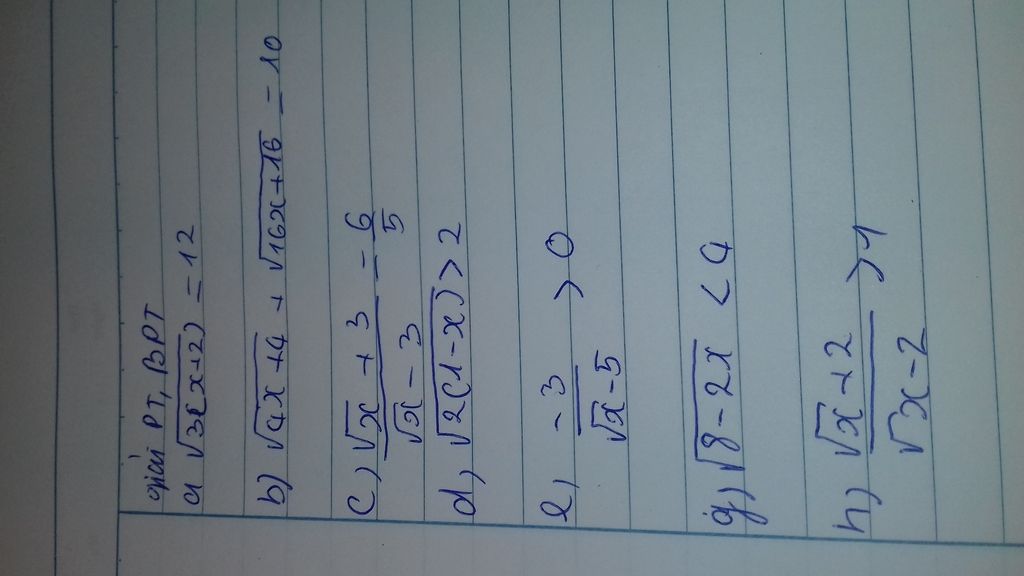 giải PT, BPT
a) √3(x+2) = 12
b) √4x+4 + √16x+16 = 10
c) √x + 3 / √x - 3 = - 6/5
d) √2(1-x) > 2
e) -3 / √x-5 > 0
g) √8-2x < 4
h) √x+2 / √x-2 > 1